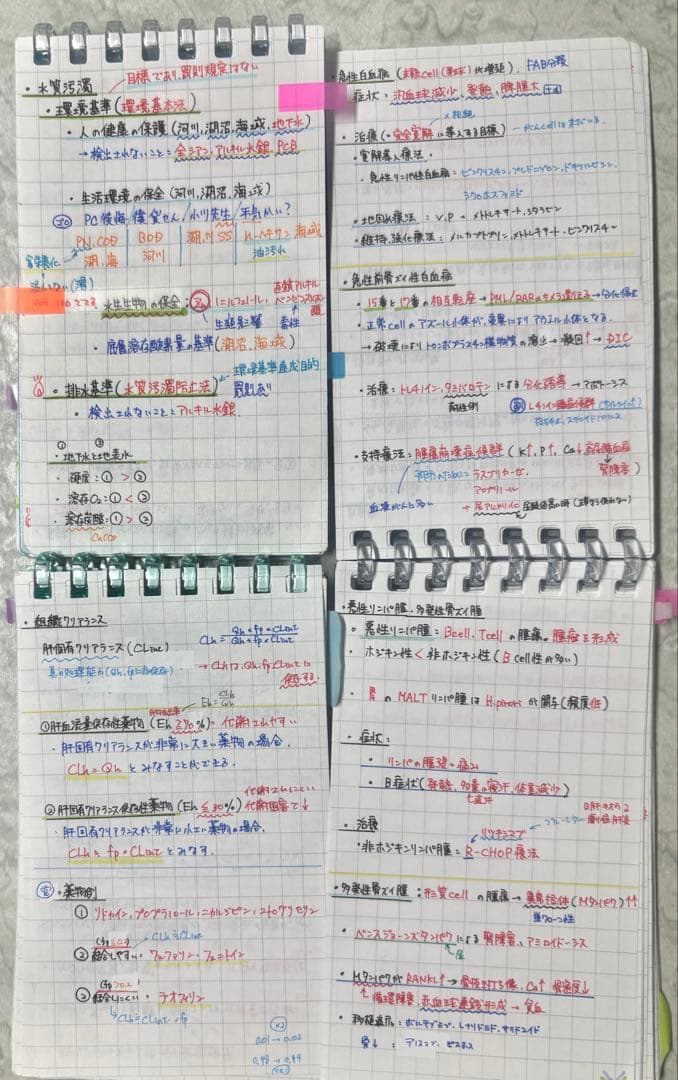 ・水質汚濁
目標であり、罰則規定はない
・環境基準(環境基本法)
・人の健康の保護(河川、湖沼、海域、地下水)
→検出されないこと=全シアン、アルキル水銀、PCB
・生活環境の保全(河川、湖沼、海域)
PN、COD
湖、海
BOD
河川
湖、川 SS
n-ヘキサン 海域
油汚れ
富栄養化
水生生物の保全:Zn
直鎖アルキルベンゼンスルホン酸
生殖影響
毒性
・底層溶存酸素量の基準(湖沼、海域)
・排水基準(水質汚濁防止法)
環境基準達成目的
罰則あり
・検出されないこと=アルキル水銀
① ②
・地下水と地表水
・硬度:①>②
・溶存O₂:①<②
・溶存炭酸:①>②
・急性白血病(未熟cell(芽球)が増殖)、FAB分類
症状:汎血球減少、発熱、脾腫大
・治療(・完全寛解に導入する目標)
・寛解導入療法
・急性リンパ性白血病:ビンクリスチン、プレドニゾロン、ドキソルビシン、
シクロホスファミド
・地固め療法:V.P+メトトレキサート、シタラビン
・維持、強化療法:メルカプトプリン、メトトレキサート、ビンクリスチン
・急性前骨髄性白血病
・15番と17番の相互転座→PML/RARαキメラ遺伝子→分化停止
・正常cellのアズール小体が、変異によりアウエル小体となる
→破壊によりトロンボプラスチン様物質の溶出→凝固↑→DIC
・治療:トレチノイン、タミバロテンによる分化誘導→アポトーシス
再発例
副 レチノイン酸症候群
・支持療法:腫瘍崩壊症候群(K↑、P↑、Ca↓ 高尿酸血症
腎障害)
予防のために:ラスブリカーゼ、
アロプリノール
血液がんに多い
+尿アルカリ化
・組織クリアランス
肝固有クリアランス(CLint)
CLh = Qh・fp・CLint / Qh + fp・CLint
→CLhはQh、fp、CLintに
依存する
Eh = CLh / Qh
①肝血流量依存性薬物(Eh ≧70%)=代謝されやすい
・肝固有クリアランスが非常に大きい薬物の場合、
CLh=Qh とみなすことができる
②肝固有クリアランス依存性薬物(Eh ≦30%)
代謝されにくい
代謝阻害で↓
・肝固有クリアランスが非常に小さい薬物の場合、
CLh = fp・CLint とみなす
・薬物例
①リドカイン、プロプラノロール、ニカルジピン、ニトログリセリン
②結合しやすい、ワルファリン、フェニトイン
③結合しにくい、テオフィリン
CLh=CLint・fp
0.01→0.02
0.98→0.99
・悪性リンパ腫、多発性骨ズイ腫
・悪性リンパ腫:Bcell、Tcellの腫瘍。腫瘤を形成
・ホジキン性<非ホジキン性(B cell性が多い)
・胃のMALTリンパ腫はH.pyloriが関与(悪度低)
・症状:
・リンパの腫張、痛み
・B症状(発熱、多量の寝汗、体重減少)
・治療
リツキシマブ
・非ホジキンリンパ腫=R-CHOP療法
・多発性骨ズイ腫:形質cellの腫瘍→異常抗体(Mタンパク)↑↑
単クローン性
・ベンスジョーンズタンパクによる腎障害、アミロイドーシス
・MタンパクがRANKL↑→骨抜き打ち像、Ca↑ 骨密度↓
循環障害、赤血球連銭形成→貧血
ボルテゾミブ、レナリドミド、サリドマイド